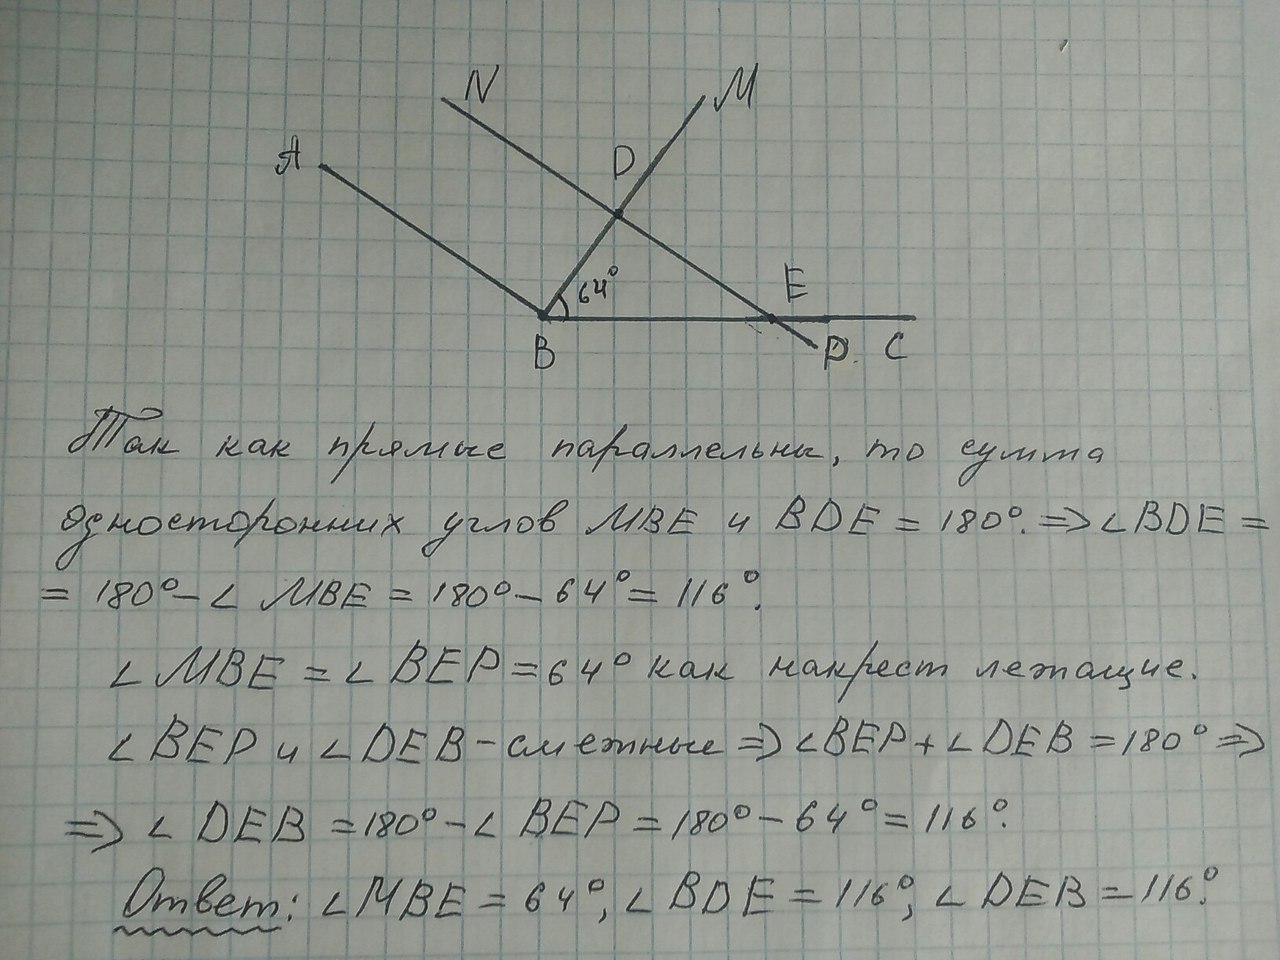 N M
A D
64°
E
B P. C
Так как прямые параллельны, то сумма
односторонних углов MBE и BDE = 180°. => ∠BDE =
= 180° - ∠ MBE = 180° - 64° = 116°.
∠ MBE = ∠ BEP = 64° как накрест лежащие.
∠ BEP и ∠ DEB - смежные => ∠BEP + ∠ DEB = 180° =>
=> ∠ DEB = 180° - ∠ BEP = 180° - 64° = 116°.
Ответ: ∠MBE = 64°, ∠ BDE = 116°, ∠ DEB = 116°.